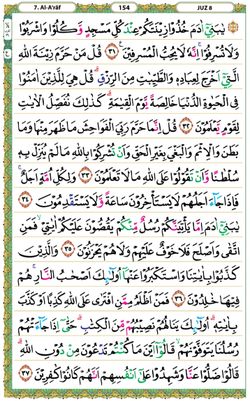 7. Al-A'râf 154 JUZ 8
يٰبَنِيْٓ اٰدَمَ خُذُوْا زِيْنَتَكُمْ عِنْدَ كُلِّ مَسْجِدٍ وَّكُلُوْا وَاشْرَبُوْا
وَلَا تُسْرِفُوْا ۚ اِنَّهٗ لَا يُحِبُّ الْمُسْرِفِيْنَ ٣١ قُلْ مَنْ حَرَّمَ زِيْنَةَ اللّٰهِ
الَّتِيْٓ اَخْرَجَ لِعِبَادِهٖ وَالطَّيِّبٰتِ مِنَ الرِّزْقِ ۗ قُلْ هِيَ لِلَّذِيْنَ اٰمَنُوْا
فِي الْحَيٰوةِ الدُّنْيَا خَالِصَةً يَّوْمَ الْقِيٰمَةِ ۗ كَذٰلِكَ نُفَصِّلُ الْاٰيٰتِ
لِقَوْمٍ يَّعْلَمُوْنَ ٣٢ قُلْ اِنَّمَا حَرَّمَ رَبِّيَ الْفَوَاحِشَ مَا ظَهَرَ مِنْهَا وَمَا
بَطَنَ وَالْاِثْمَ وَالْبَغْيَ بِغَيْرِ الْحَقِّ وَاَنْ تُشْرِكُوْا بِاللّٰهِ مَا لَمْ يُنَزِّلْ بِهٖ
سُلْطٰنًا وَّاَنْ تَقُوْلُوْا عَلَى اللّٰهِ مَا لَا تَعْلَمُوْنَ ٣٣ وَلِكُلِّ اُمَّةٍ اَجَلٌ ۚ
فَاِذَا جَآءَ اَجَلُهُمْ لَا يَسْتَأْخِرُوْنَ سَاعَةً وَّلَا يَسْتَقْدِمُوْنَ ٣٤
يٰبَنِيْٓ اٰدَمَ اِمَّا يَأْتِيَنَّكُمْ رُسُلٌ مِّنْكُمْ يَقُصُّوْنَ عَلَيْكُمْ اٰيٰتِيْ ۙ فَمَنِ
اتَّقٰى وَاَصْلَحَ فَلَا خَوْفٌ عَلَيْهِمْ وَلَا هُمْ يَحْزَنُوْنَ ٣٥ وَالَّذِيْنَ
كَذَّبُوْا بِاٰيٰتِنَا وَاسْتَكْبَرُوْا عَنْهَآ اُولٰٓئِكَ اَصْحٰبُ النَّارِ ۚ هُمْ
فِيْهَا خٰلِدُوْنَ ٣٦ فَمَنْ اَظْلَمُ مِمَّنِ افْتَرٰى عَلَى اللّٰهِ كَذِبًا اَوْ كَذَّبَ
بِاٰيٰتِهٖ ۗ اُولٰٓئِكَ يَنَالُهُمْ نَصِيْبُهُمْ مِّنَ الْكِتٰبِ ۗ حَتّٰىٓ اِذَا جَآءَتْهُمْ
رُسُلُنَا يَتَوَفَّوْنَهُمْ ۙ قَالُوْٓا اَيْنَ مَا كُنْتُمْ تَدْعُوْنَ مِنْ دُوْنِ اللّٰهِ ۗ
قَالُوْا ضَلُّوْا عَنَّا وَشَهِدُوْا عَلٰٓى اَنْفُسِهِمْ اَنَّهُمْ كَانُوْا كٰفِرِيْنَ ٣٧